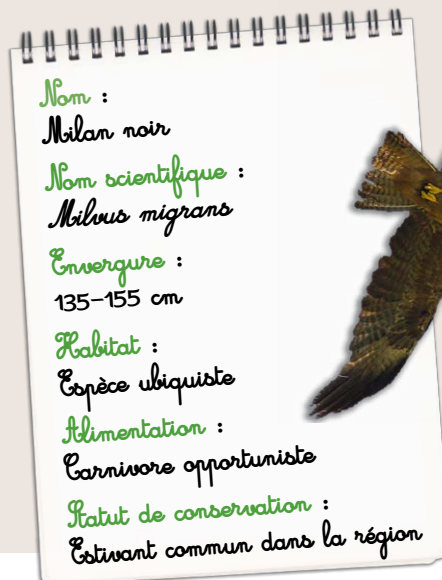 Nom :
Milan noir
Nom scientifique :
Milvus migrans
Envergure :
135-155 cm
Habitat :
Espèce ubiquiste
Alimentation :
Carnivore opportuniste
Statut de conservation :
Estivant commun dans la région